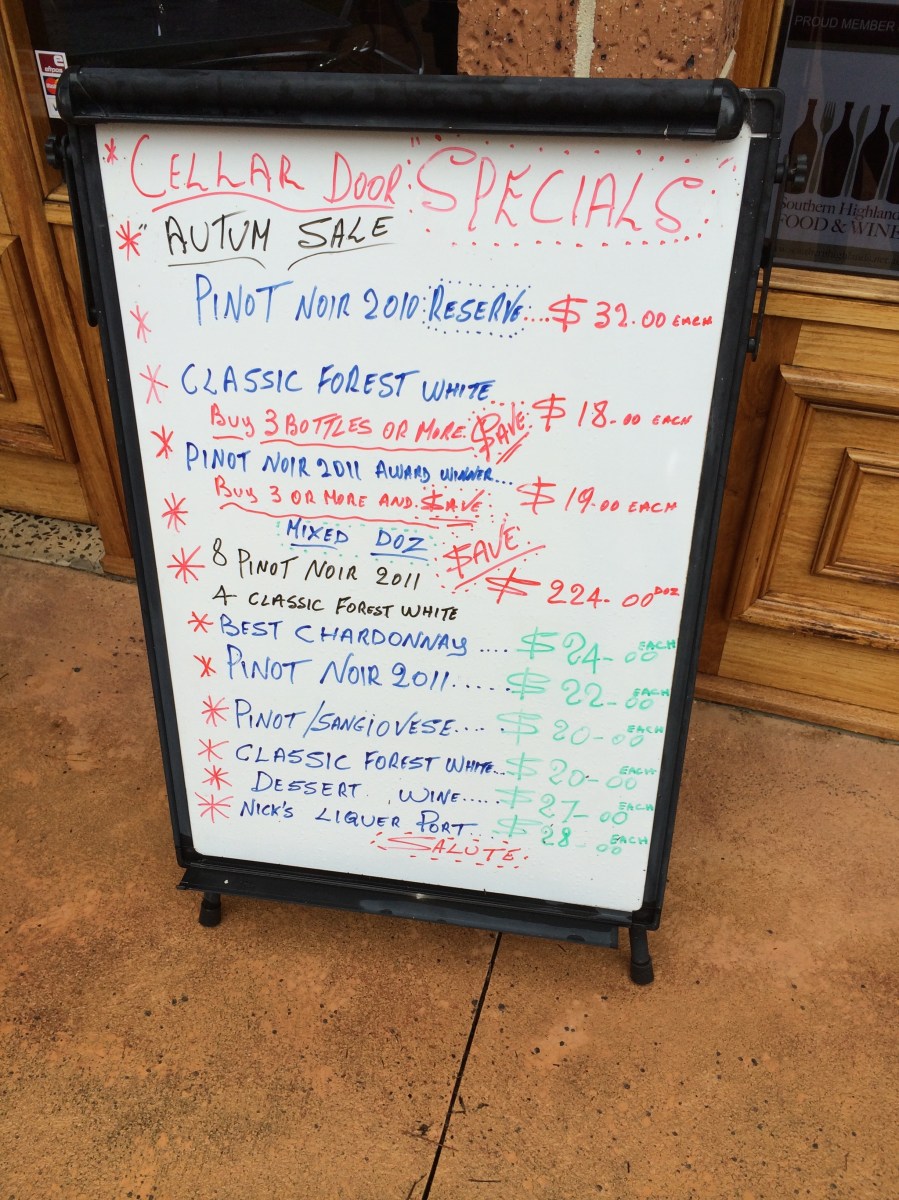 PROUD MEMBER
Southern Highland
FOOD & WINE
* CELLAR DOOR: "SPECIALS"
* "AUTUM SALE
PINOT NOIR 2010 RESERVE.... $ 32.00 EACH
*
* CLASSIC FOREST WHITE
$ 18.00 EACH
BUY 3 BOTTLES OR MORE $AVE
* PINOT NOIR 2011 AWARD WINNER...
$ 19.00 EACH
BUY 3 OR MORE AND $AVE
* MIXED DOZ
$AVE
* 8 PINOT NOIR 2011
$ 224.00 DOZ
4 CLASSIC FOREST WHITE
* BEST CHARDONNAY .... $ 24-00 EACH
* PINOT NOIR 2011...... $ 22-00 EACH
* PINOT/SANGIOVESE.... $ 20-00 EACH
* CLASSIC FOREST WHITE... $ 20-00 EACH
* DESSERT WINE..... $ 27-00 EACH
* NICK'S LIQUER PORT... $ 28-00 EACH
SALUTE.